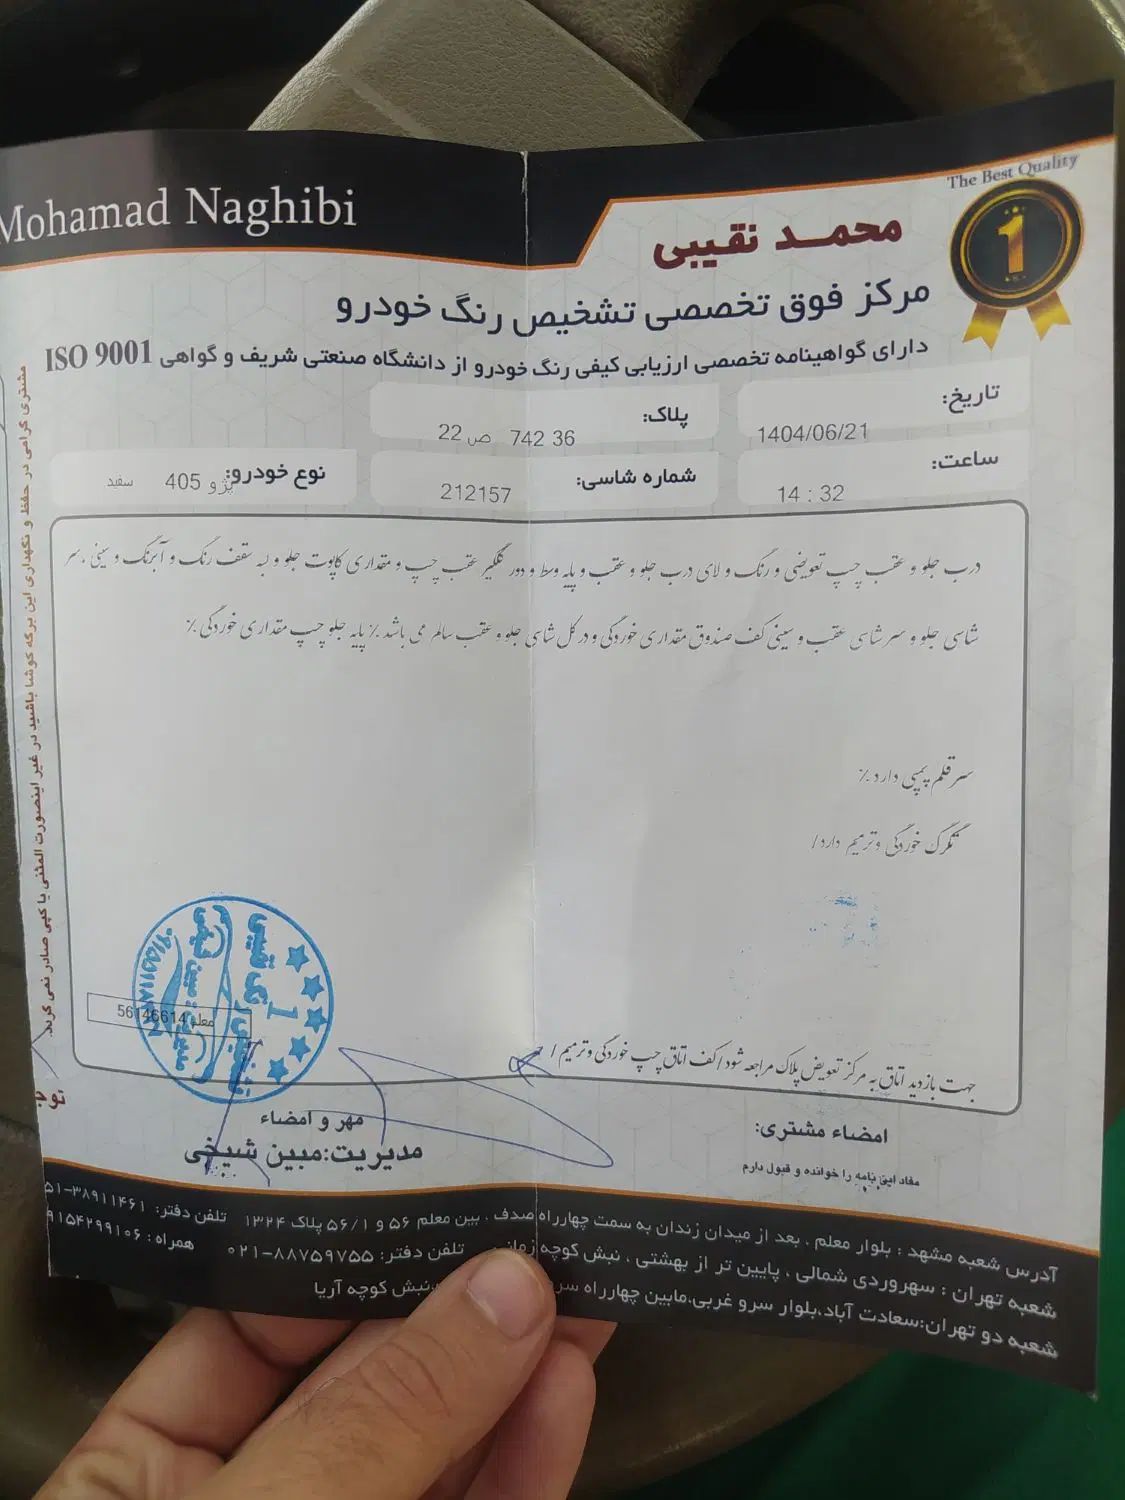 Mohamad Naghibi
The Best Quality
1
محمد نقیبی
مرکز فوق تخصصی تشخیص رنگ خودرو
دارای گواهینامه تخصصی ارزیابی کیفی رنگ خودرو از دانشگاه صنعتی شریف و گواهی ISO 9001
تاریخ: 1404/06/21
پلاک: 36 742 ص 22
ساعت: 14 : 32
شماره شاسی: 212157
نوع خودرو: پژو 405 سفید
درب جلو و عقب چپ تعویضی و رنگ و لای درب جلو و عقب و پایه وسط و دور گلگیر عقب چپ و مقداری کاپوت جلو و لبه سقف رنگ و آبرنگ و سینی ، سر
شاسی جلو و سر شاسی عقب و سینی کف صندوق مقداری خوردگی و در کل شاسی جلو و عقب سالم می باشد ٪ پایه جلو چپ مقداری خوردگی ٪
سر قلم پمپی دارد ٪
تگرگ خوردگی و ترمیم دارد /
جهت بازدید اتاق به مرکز تعویض پلاک مراجعه شود / کف اتاق چپ خوردگی و ترمیم /
معلم 56146614
مشتری گرامی در حفظ و نگهداری این برگه کوشا باشید در غیر اینصورت المثنی یا کپی صادر نمی گردد.
مهر و امضاء
مدیریت: مبین شیخی
امضاء مشتری:
مفاد این نامه را خوانده و قبول دارم
آدرس شعبه مشهد : بلوار معلم ، بعد از میدان زندان به سمت چهارراه صدف ، بین معلم ۵۶ و ۵۶/۱ پلاک ۱۳۲۴ تلفن دفتر: ۳۸۹۱۱۴۶۱-۰۵۱
شعبه تهران : سهروردی شمالی ، پایین تر از بهشتی ، نبش کوچه تلفن دفتر: ۸۸۷۵۹۷۵۵-۰۲۱ همراه : ۹۱۵۴۲۹۹۱۰۶
شعبه دو تهران:سعادت آباد،بلوار سرو غربی،مابین چهارراه ،نبش کوچه آریا